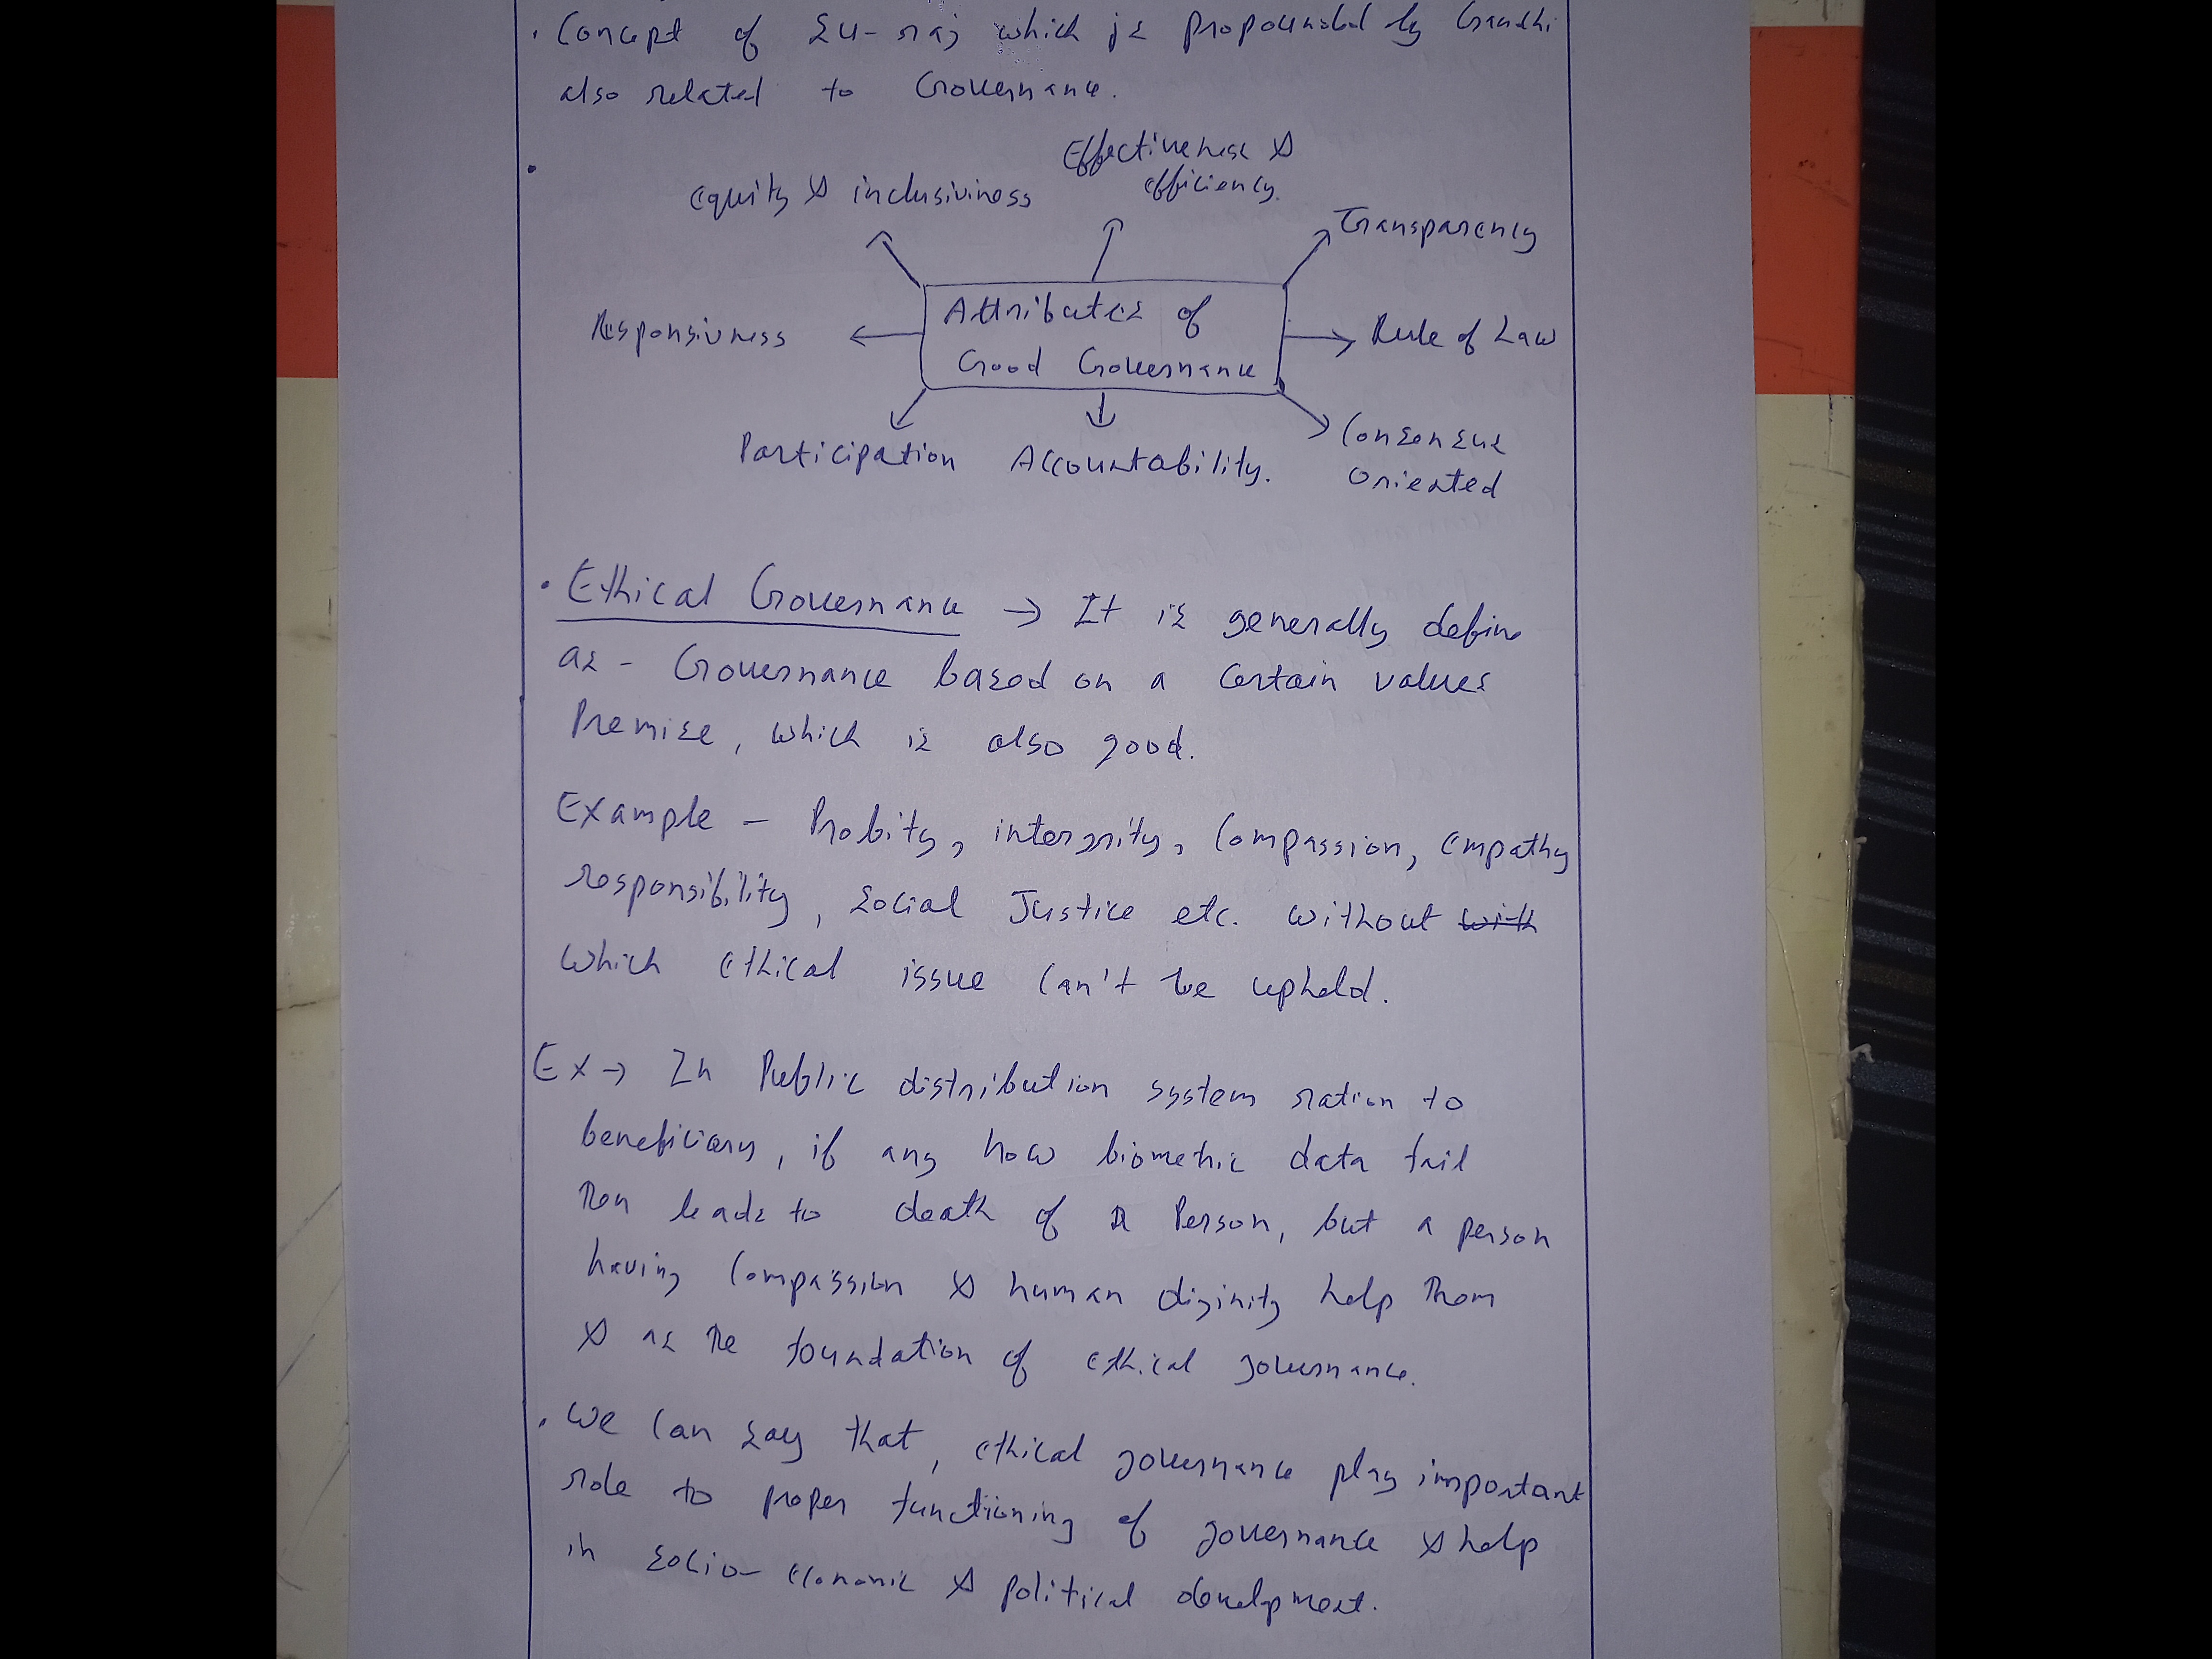 . Concept of Su-raj which is propounded by Gandhi
also related to Governance.
•
Effectiveness &
efficiency.
equity & inclusiviness
Transparency
Attributes of
Good Governance
Responsivness
Rule of Law
Participation
Accountability.
Consensus
oriented
• Ethical Governance → It is generally define
as - Governance based on a certain values
Premise, which is also good.
Example - Probity, intergrity, Compassion, empathy
responsibility, social Justice etc. without with
which ethical issue can't be upheld.
Ex → In Public distribution system ration to
beneficiary, if any how biometric data fail
then leads to death of a Person, but a person
having Compassion & human diginity help them
& as the foundation of ethical governance.
. We can say that, ethical governance play important
role to proper functioning of governance & help
in socio-economic & political development.